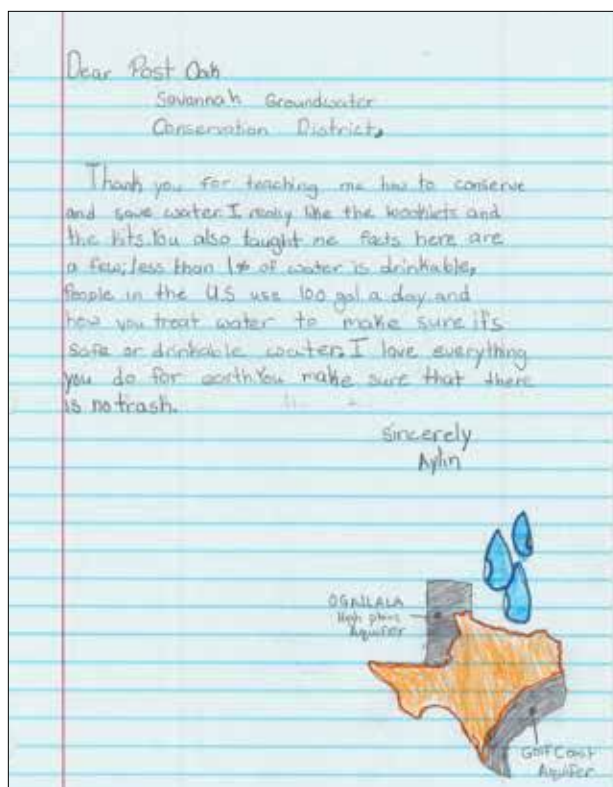 Dear Post Oak
Savannah Groundwater
Conservation District,
Thank you for teaching me how to conserve
and save water. I really like the booklets and
the kits. You also taught me facts here are
a few; less than 1% of water is drinkable,
People in the US use 100 gal a day and
how you treat water to make sure it's
safe or drinkable water. I love everything
you do for earth. You make sure that there
is no trash.
Sincerely
Aylin
OGALLALA
High plains
Aquifer
Golf Coast
Aquifer